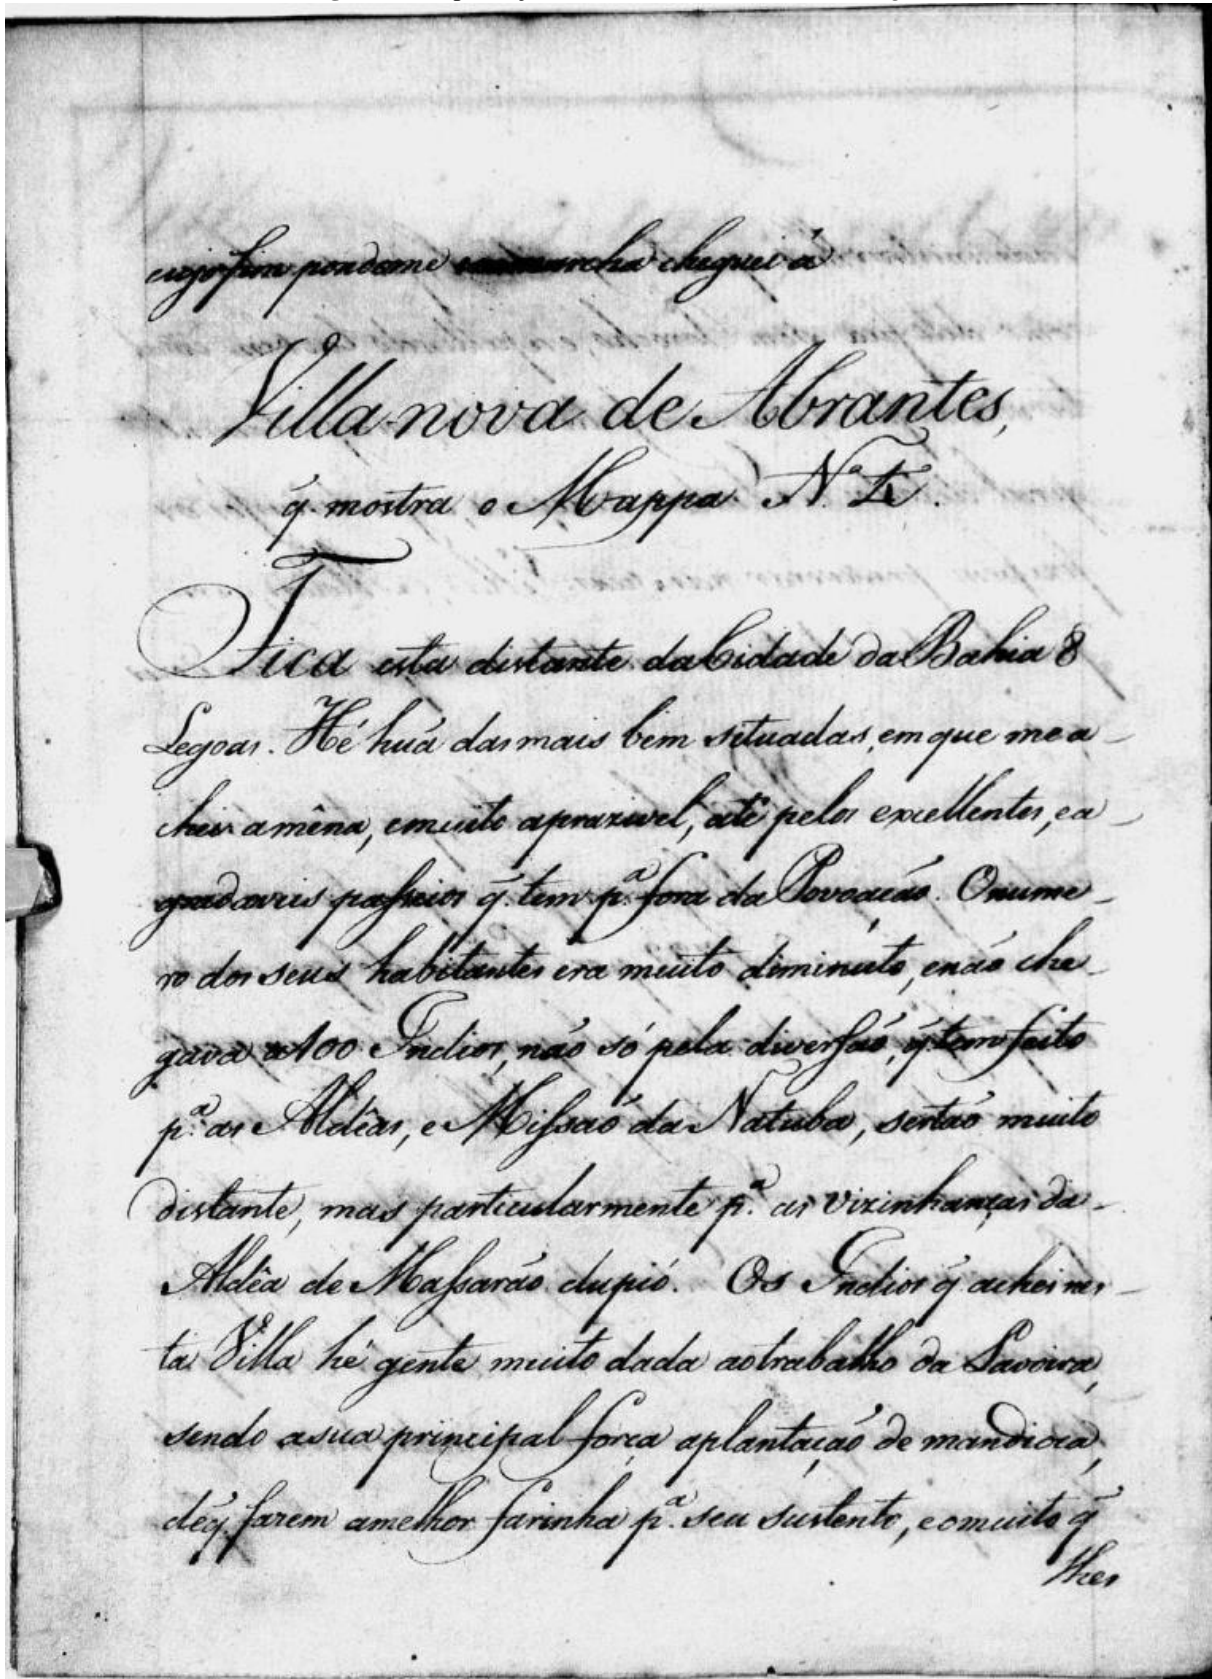 cujo fim pondome em marcha cheguei á
Villa nova de Abrantes,
q̃. mostra o Mappa N. E.
Fica esta distante da Cidade da Bahia 8
Legoas. Hé huã das mais bem situadas, em que me a-
chei amêna, e muito aprazivel, até pelos excellentes, e a-
gradaveis passeios q̃. tem p.ª fora da Povoação. O nume-
ro dos seus habitantes era muito diminuto, e não che-
gava a 100 Indios, não só pela diversão, q̃ tem feito
p.ª as Aldêas, e Missaõ da Natuba, sertão muito
distante, mas particularmente p.ª as vizinhanças da
Aldêa de Massarão dupió. Os Indios q̃ achei nes-
ta Villa hé gente muito dada ao trabalho da Lavoira,
sendo a sua principal força a plantação de mandioca,
de q̃. fazem a melhor farinha p.ª seu sustento, e o muito q̃
lhes